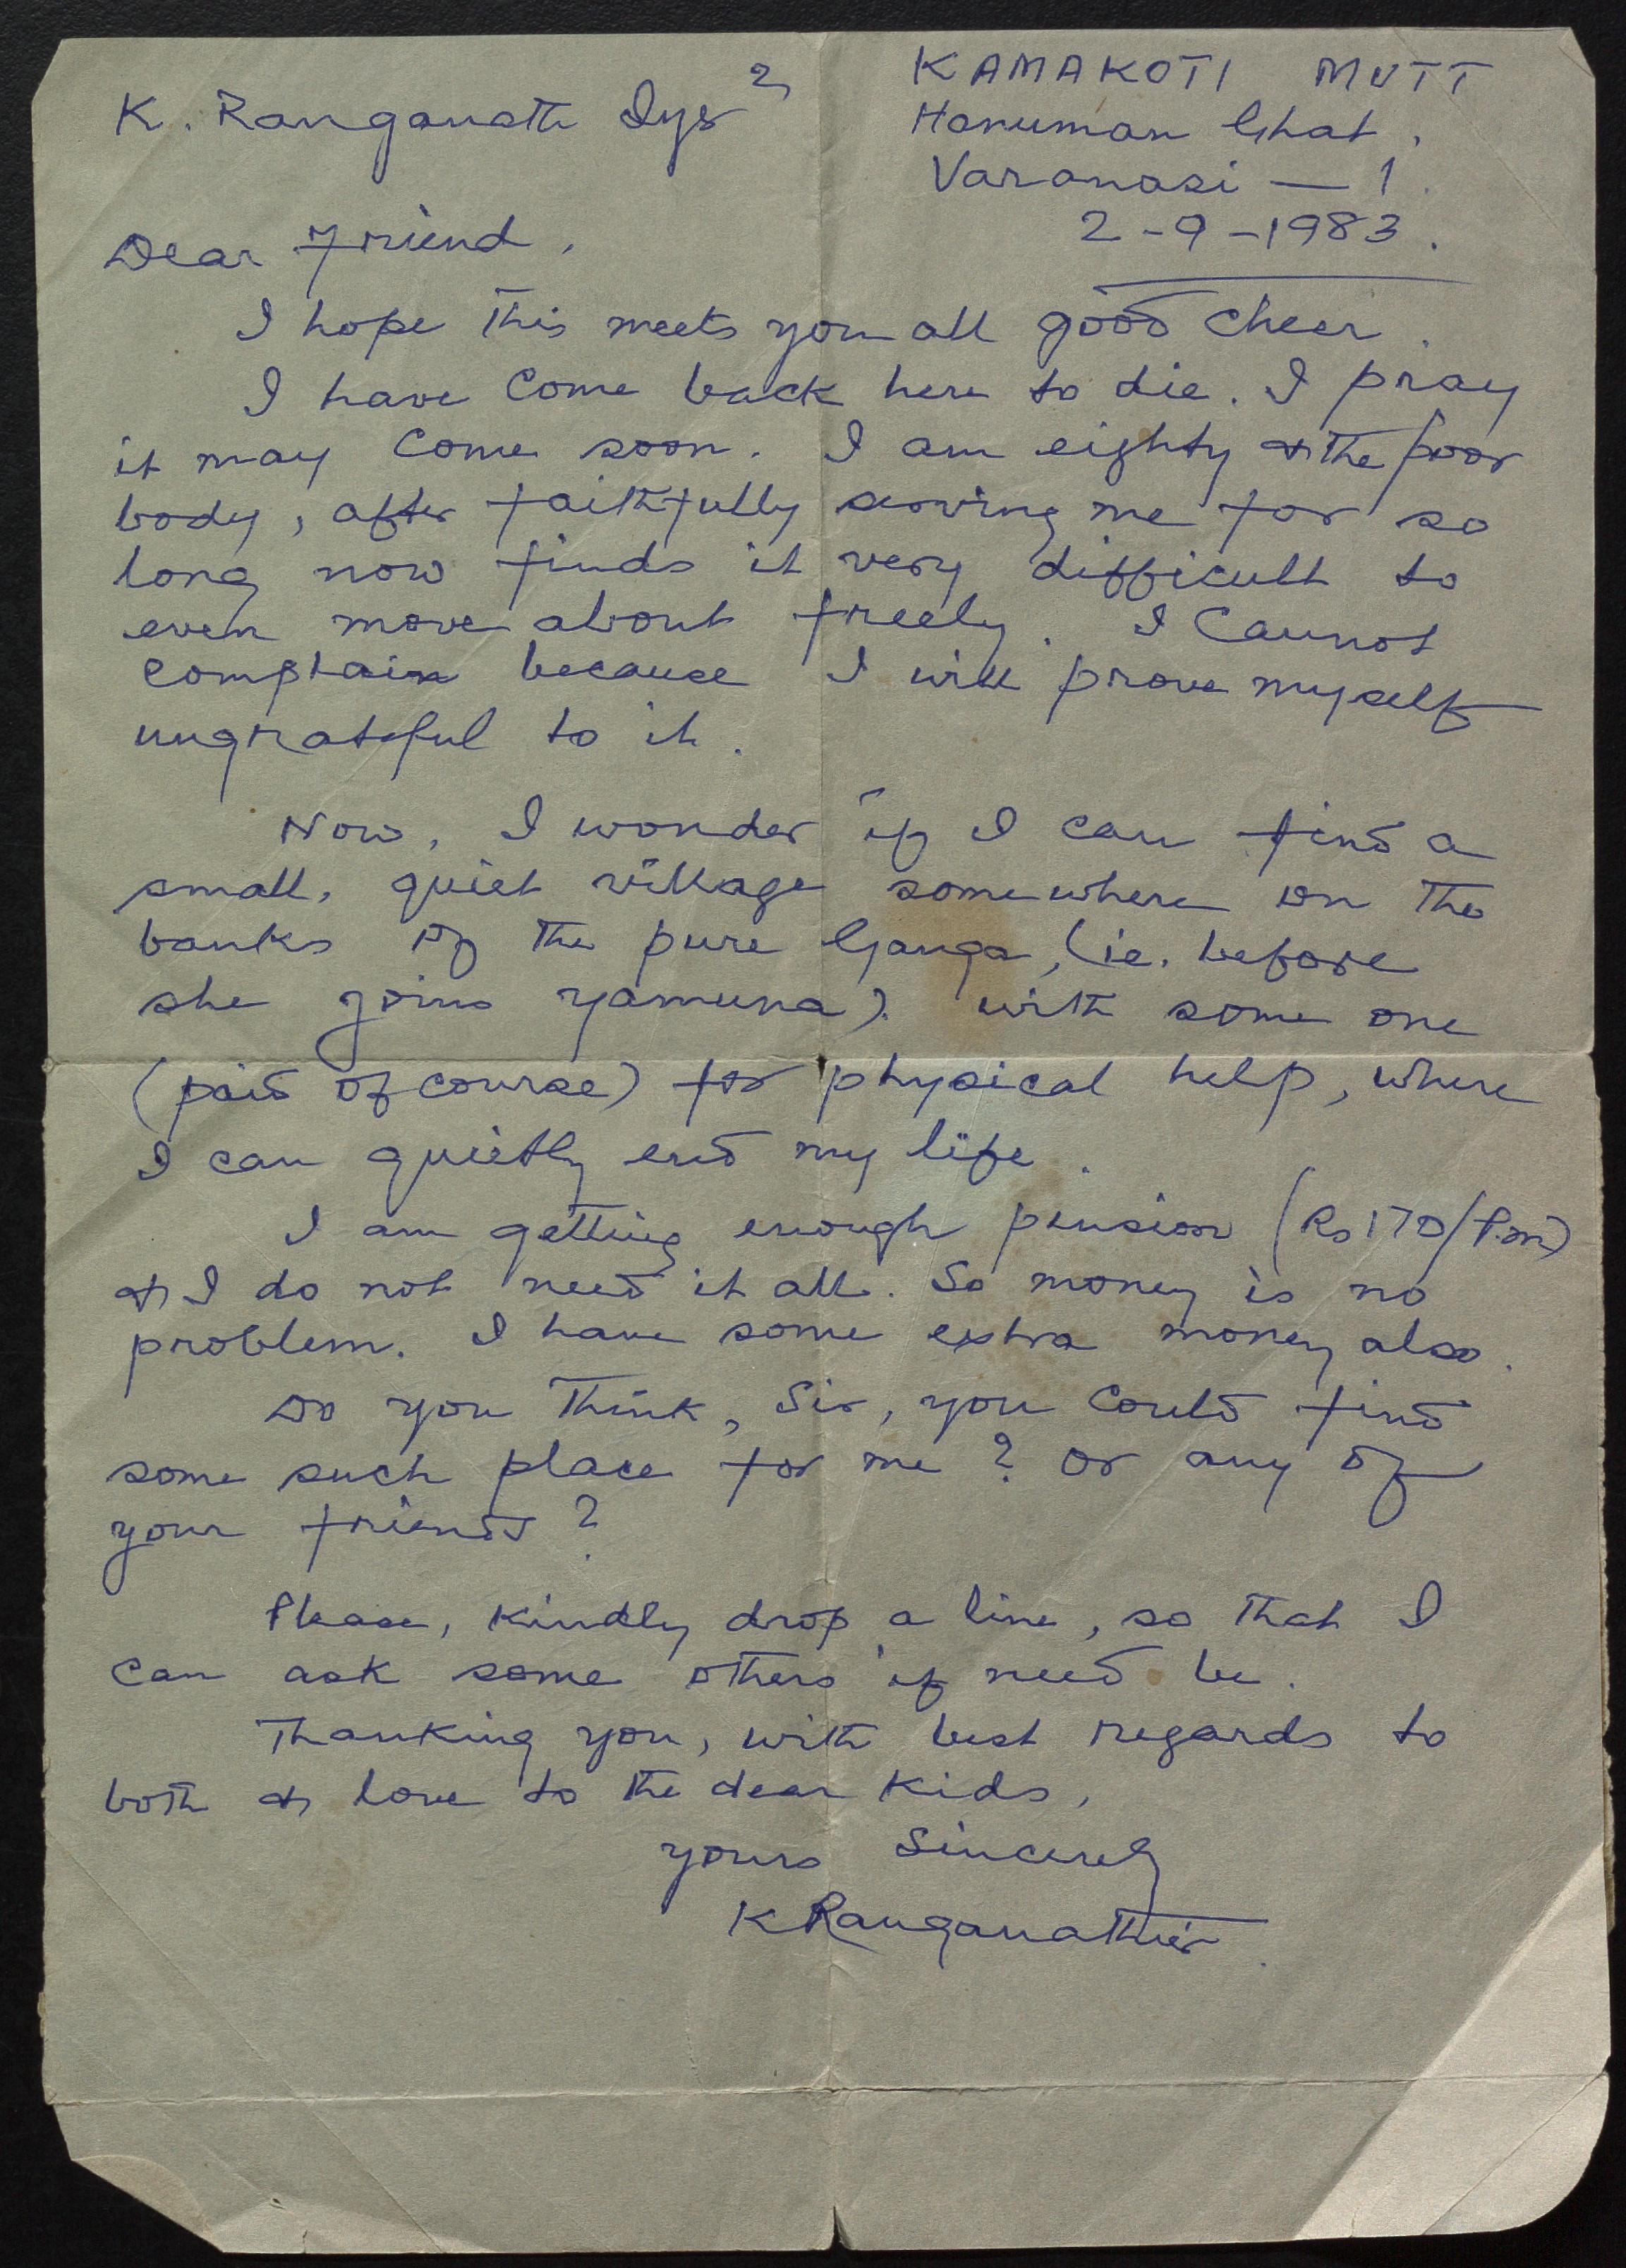 KAMAKOTI MUTT
K. Ranganath Iyer
Hanuman Ghat,
Varanasi — 1.
2-9-1983.
Dear friend,
I hope this meets you all good cheer.
I have come back here to die. I pray
it may come soon. I am eighty & the poor
body, after faithfully serving me for so
long now finds it very difficult to
even move about freely. I cannot
complain because I will prove myself
ungrateful to it.
Now, I wonder if I can find a
small, quiet village somewhere on the
banks of the pure Ganga, (ie. before
she joins yamuna). with some one
(paid of course) for physical help, where
I can quietly end my life.
I am getting enough pension (Rs 170/P.m)
& I do not need it all. So money is no
problem. I have some extra money also.
Do you think, Sir, you could find
some such place for me? or any of
your friends?
Please, kindly drop a line, so that I
can ask some others if need be.
Thanking you, with best regards to
both & love to the dear kids,
yours sincerely
K Ranganathier.